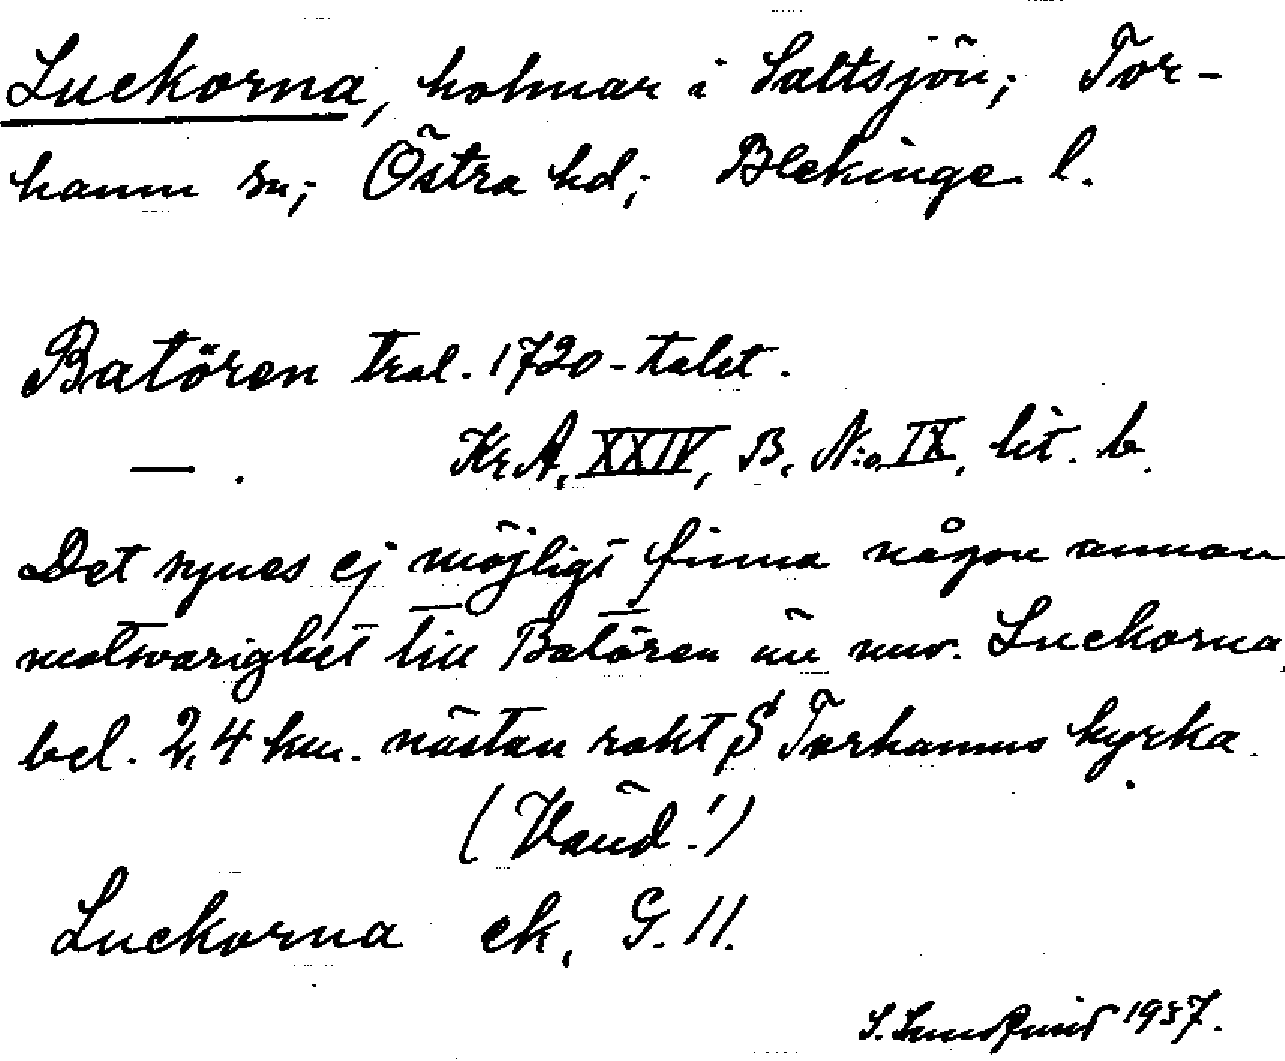 Luckorna, holmar i Saltsjön; Tor-
hamn sn; Östra hd; Blekinge l.
Batören tral. 1720-talet.
— . Kr. A. XXIV, B. N:o IX, lit. b.
Det synes ej möjligt finna någon annan
motsvarighet till Batören än nuv. Luckorna,
bel. 2,4 km. nästan rakt S Torhamns kyrka.
(Vänd!)
Luckorna ek. G. 11.
S. Sundquist 1937.